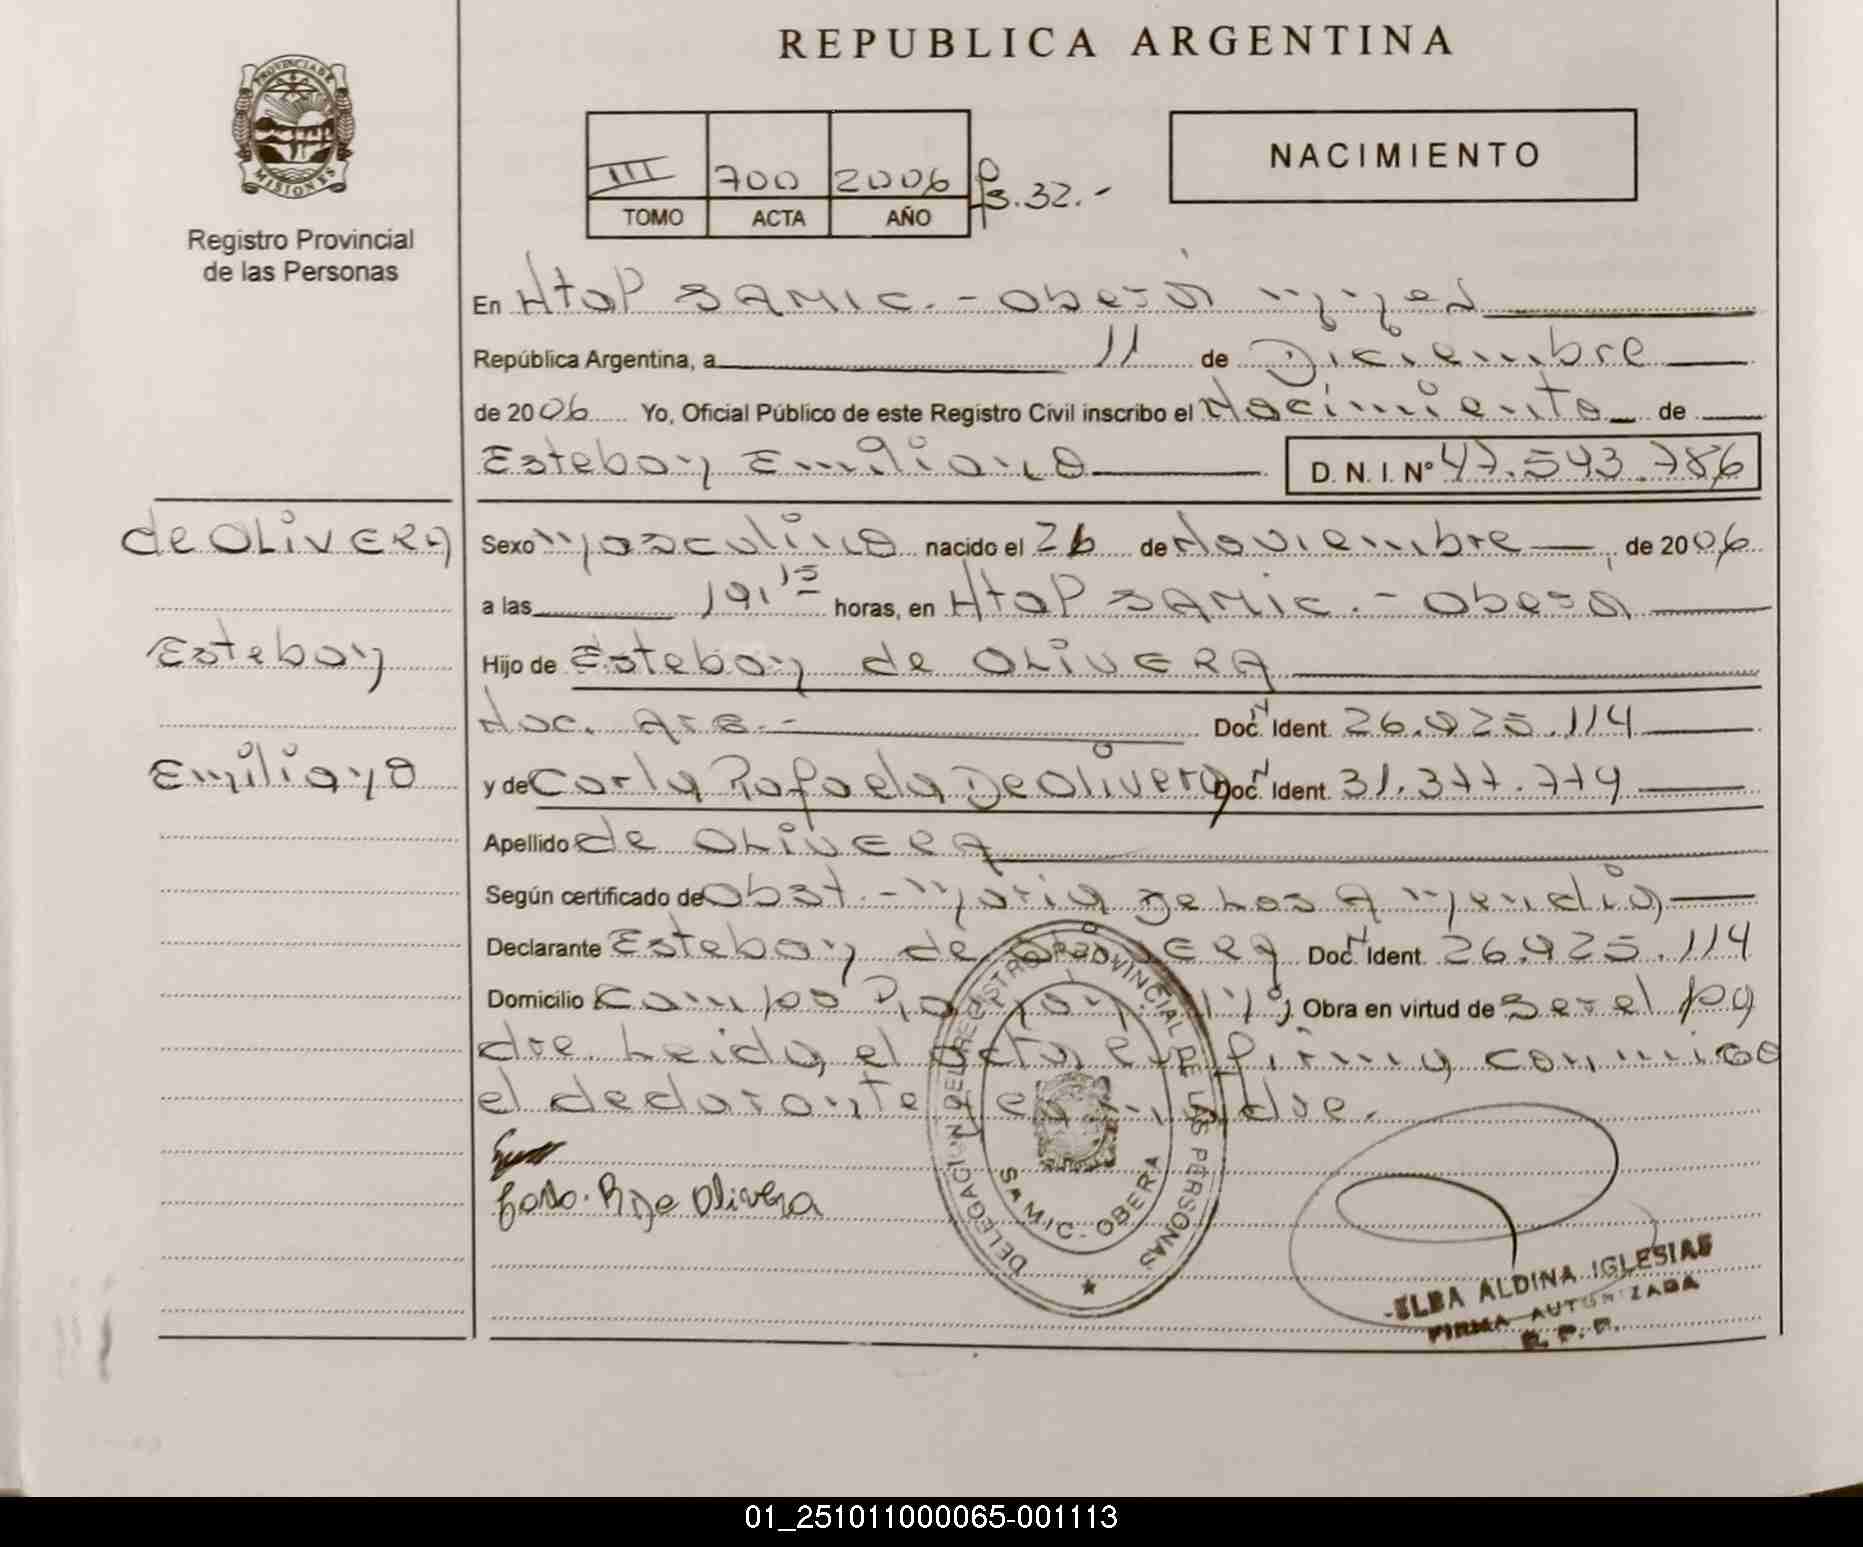 REPUBLICA ARGENTINA
PROVINCIA DE MISIONES
Registro Provincial
de las Personas
III 700 2006 fs.32.-
TOMO ACTA AÑO
NACIMIENTO
En Htap SAMIC.-Oberá
República Argentina, a 11 de Diciembre
de 2006 Yo, Oficial Público de este Registro Civil inscribo el Nacimiento de
Esteban Emiliano D. N. I. Nº 47.543.786
de OLIVERA
Esteban
Emiliano
Sexo Masculino nacido el 26 de Noviembre, de 2006
a las 19,15 horas, en Htap SAMIC.-Oberá
Hijo de Esteban de OLIVERA
Nac. Arg.- Doc. N Ident. 26.925.114
y de Carla Rafaela De Olivera Doc. N Ident. 31.377.779
Apellido de OLIVERA
Según certificado de Obst.-Maria De Los A Mendia
Declarante Esteban de Olivera Doc. N Ident. 26.925.114
Domicilio Campo Obra en virtud de ser el pa
dre. Leida el acta, la firma conmigo
el declarante y la madre.
Carla. R De Olivera
DELEGACION DEL REGISTRO PROVINCIAL DE LAS PERSONAS
SAMIC - OBERA
ELBA ALDINA IGLESIAS
FIRMA AUTORIZADA
R. P. P.
01_251011000065-001113